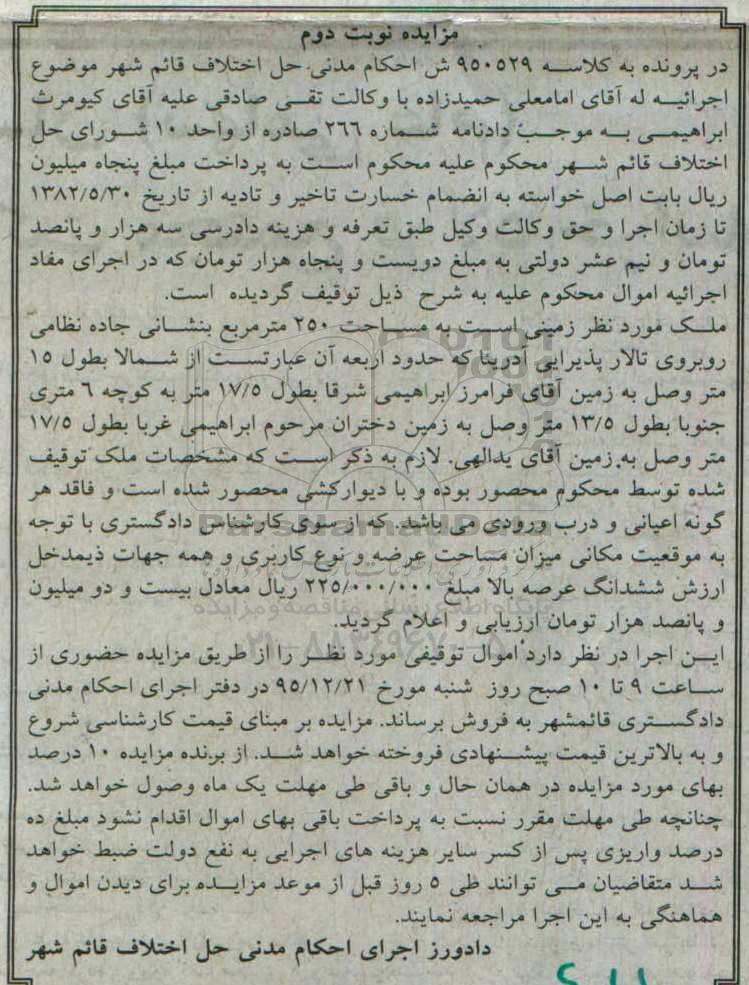 مزایده نوبت دوم
در پرونده به کلاسه ۹۵۰۵۲۹ ش احکام مدنی حل اختلاف قائم شهر موضوع
اجرائیه له آقای امامعلی حمیدزاده با وکالت تقی صادقی علیه آقای کیومرث
ابراهیمی به موجب دادنامه شماره ۲۶۶ صادره از واحد ۱۰ شورای حل
اختلاف قائم شهر محکوم علیه محکوم است به پرداخت مبلغ پنجاه میلیون
ریال بابت اصل خواسته به انضمام خسارت تاخیر و تادیه از تاریخ ۱۳۸۲/۵/۳۰
تا زمان اجرا و حق وکالت وکیل طبق تعرفه و هزینه دادرسی سه هزار و پانصد
تومان و نیم عشر دولتی به مبلغ دویست و پنجاه هزار تومان که در اجرای مفاد
اجرائیه اموال محکوم علیه به شرح ذیل توقیف گردیده است.
ملک مورد نظر زمینی است به مساحت ۲۵۰ مترمربع بنشانی جاده نظامی
روبروی تالار پذیرایی آدرینا که حدود اربعه آن عبارتست از شمالا بطول ۱۵
متر وصل به زمین آقای فرامرز ابراهیمی شرقا بطول ۱۷/۵ متر به کوچه ۶ متری
جنوبا بطول ۱۳/۵ متر وصل به زمین دختران مرحوم ابراهیمی غربا بطول ۱۷/۵
متر وصل به زمین آقای یدالهی. لازم به ذکر است که مشخصات ملک توقیف
شده توسط محکوم محصور بوده و با دیوارکشی محصور شده است و فاقد هر
گونه اعیانی و درب ورودی می باشد. که از سوی کارشناس دادگستری با توجه
به موقعیت مکانی میزان مساحت عرضه و نوع کاربری و همه جهات ذیمدخل
ارزش ششدانگ عرصه بالا مبلغ ۲۲۵/۰۰۰/۰۰۰ ریال معادل بیست و دو میلیون
و پانصد هزار تومان ارزیابی و اعلام گردید.
این اجرا در نظر دارد اموال توقیفی مورد نظر را از طریق مزایده حضوری از
ساعت ۹ تا ۱۰ صبح روز شنبه مورخ ۹۵/۱۲/۲۱ در دفتر اجرای احکام مدنی
دادگستری قائمشهر به فروش برساند. مزایده بر مبنای قیمت کارشناسی شروع
و به بالاترین قیمت پیشنهادی فروخته خواهد شد. از برنده مزایده ۱۰ درصد
بهای مورد مزایده در همان حال و باقی طی مهلت یک ماه وصول خواهد شد.
چنانچه طی مهلت مقرر نسبت به پرداخت باقی بهای اموال اقدام نشود مبلغ ده
درصد واریزی پس از کسر سایر هزینه های اجرایی به نفع دولت ضبط خواهد
شد متقاضیان می توانند طی ۵ روز قبل از موعد مزایده برای دیدن اموال و
هماهنگی به این اجرا مراجعه نمایند.
دادورز اجرای احکام مدنی حل اختلاف قائم شهر